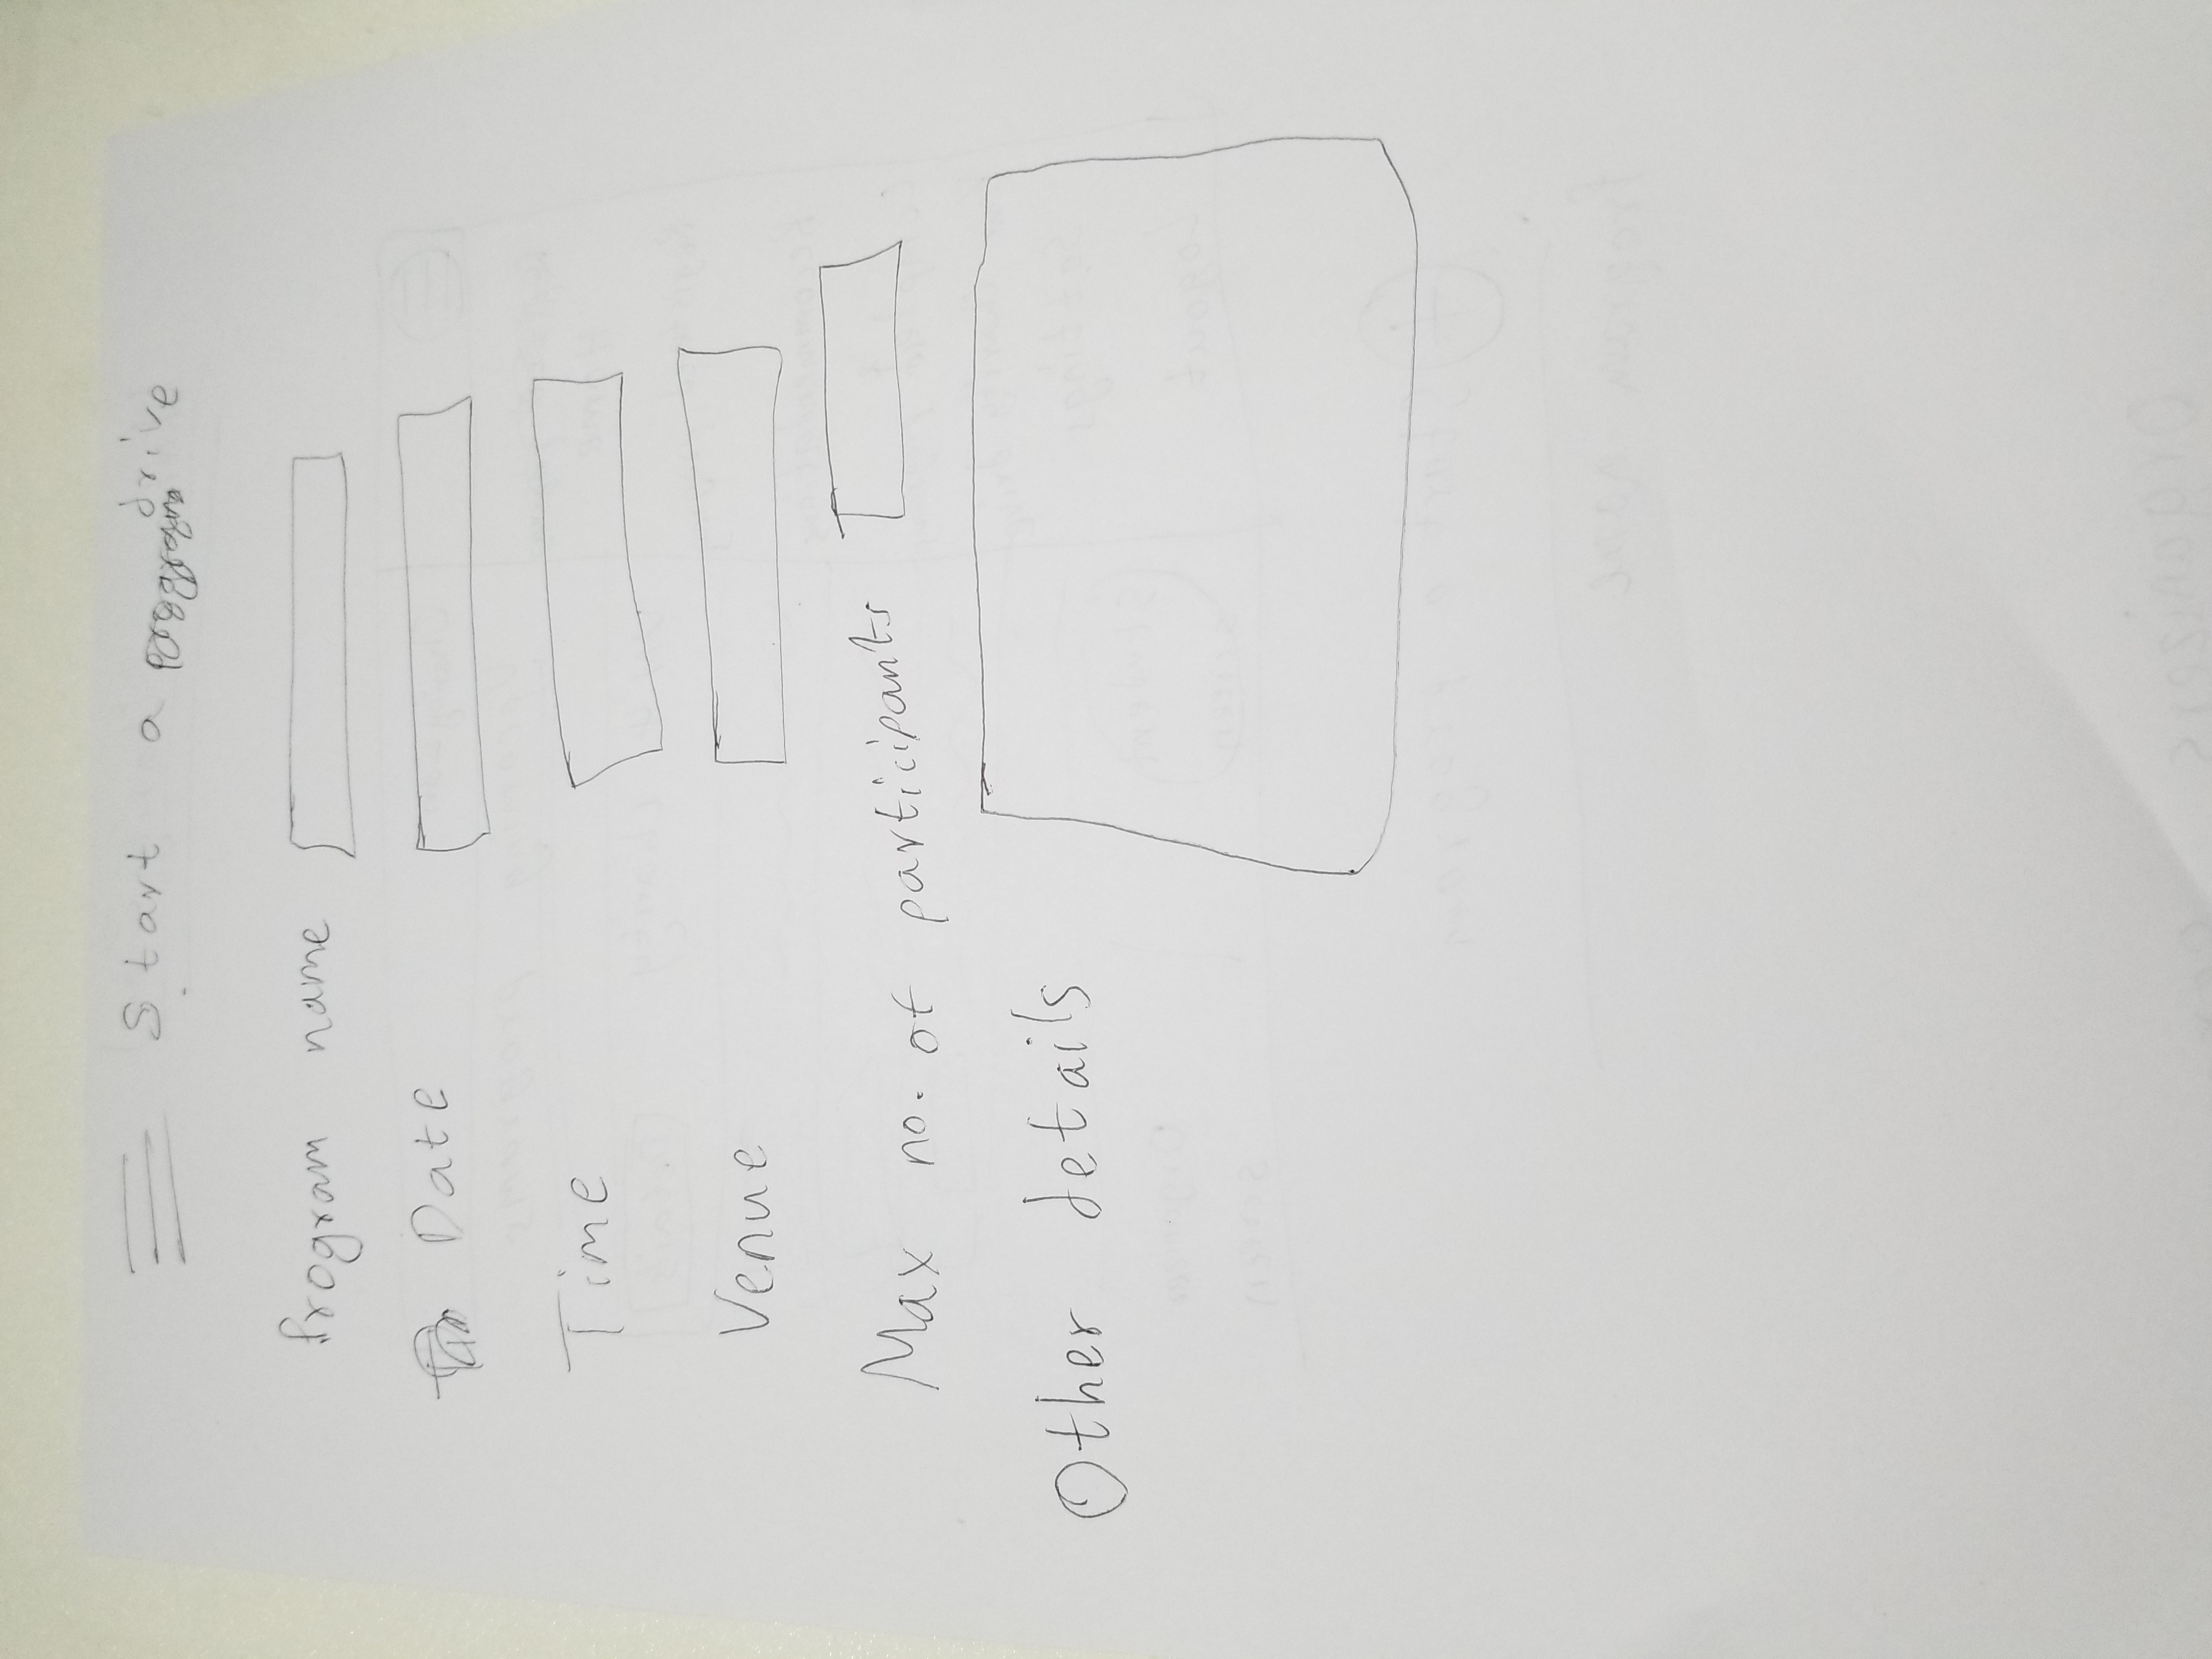 Start a drive
Program name
Date
Time
Venue
Max no. of participants
Other details